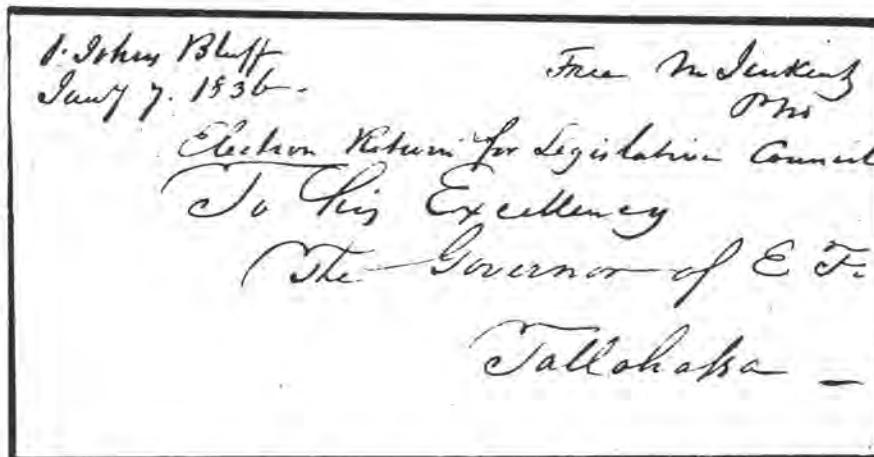 S. Johns Bluff
Jany 7. 1836-
Free M Jenkins
PM
Election Return for Legislative Council
To his Excellency
The Governor of E F.
Tallahassa -